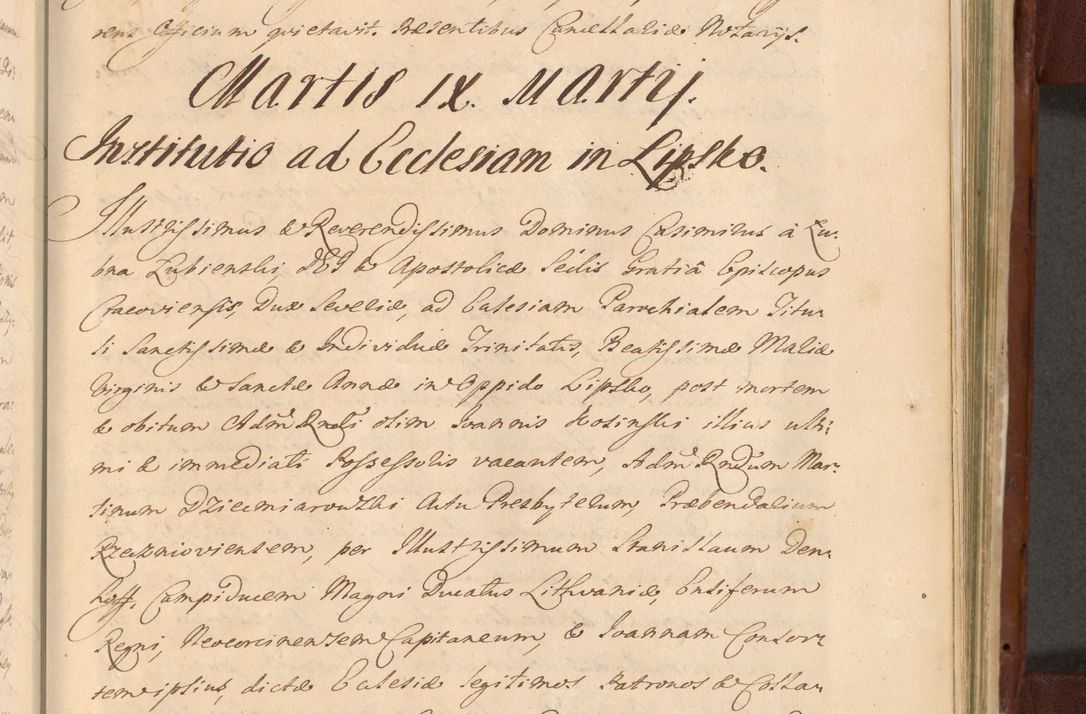 rens Officium quietavit. Præsentibus Cancellariæ Notarijs.
Martis IX. Martij.
Institutio ad Ecclesiam in Lipsko.
Illustrissimus & Reverendissimus Dominus Casimirus à Lu:
bna Lubienski, DEI & Apostolicæ Sedis Gratiâ Episcopus
Cracoviensis, Dux Severiæ, ad Eclesiam Parochialem Titu-
li Sanctissimæ & Individuæ Trinitatis, Beatissimæ Mariæ
Virginis & Sanctæ Annæ in Oppido Lipsko, post mortem
& obitum Adm Rndi olim Joannis Kosinski illius ulti:
mi & immediati Possessoris vacantem, Adm Rndum Mar:
tinum Dzieemiarowski Actu Presbyterum, Præbendarium
Rzecznioviensem, per Illustrissimum Stanislaum Den:
hoff, Campiducem Magni Ducatus Lithvaniæ, Ensiferum
Regni, Neocorcinensem Capitaneum, & Joannam Consor:
tem ipsius, dictæ Eclesiæ legitimos Patronos & Colla-